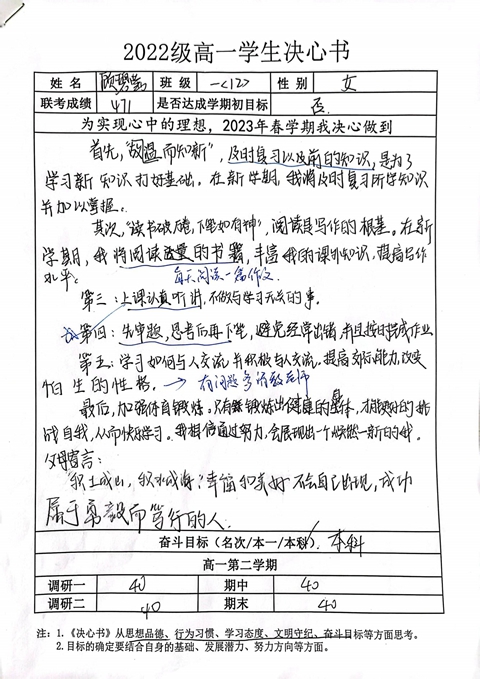 2022级高一学生决心书
姓名 顾碧莹 班级 一<12> 性别 女
联考成绩 471 是否达成学期初目标 否
为实现心中的理想，2023年春学期我决心做到
首先，“温而知新”，及时复习以及前的知识，是为了
学习新知识打好基础。在新学期，我将及时复习所学知识
并加以掌握。
其次，“读书破万卷，下笔如有神”，阅读是写作的根基。在新
学期，我将阅读适量的书籍，丰富我的课外知识，提高写作
水平。
每天阅读一篇作文
第三：上课认真听讲，不做与学习无关的事。
第四：先审题，思考后再下笔，避免经常出错，并且按时完成作业
第五：学习如何与人交流，并积极与人交流，提高交际能力，改变
怕生的性格。→ 有问题多请教老师
最后，加强体育锻炼。只有锻炼出健康的身体，才能更好的挑
战自我，从而快乐学习。我相信通过努力，会展现出一个焕然一新的我。
父母寄言：
积土成山，积水成海！幸福和美好不会自己出现，成功
属于勇毅而笃行的人.
奋斗目标（名次/本一/本科）. 本科
高一第二学期
调研一 40 期中 40
调研二 40 期末 40
注：1.《决心书》从思想品德、行为习惯、学习态度、文明守纪、奋斗目标等方面思考。
2.目标的确定要结合自身的基础、发展潜力、努力方向等方面。